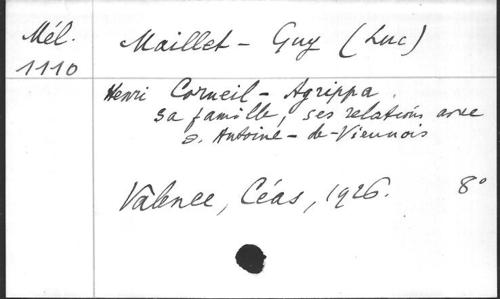 Mél.
1110
Maillet - Guy (Luc)
Henri Corneil - Agrippa.
sa famille, ses relations avec
s. Antoine-de-Viennois
Valence, Céas, 1926. 8°